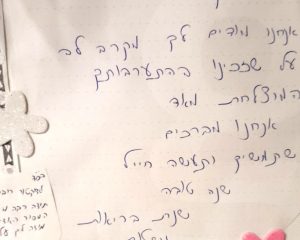 אנחנו מודים לך מקרב לב
על שזכינו בהתערבותך
המוצלחת מאד
אנחנו מברכים
שתמשיך ותעשה חייל
שנה טובה
שנת בריאות
בס"ד
תודה רבה